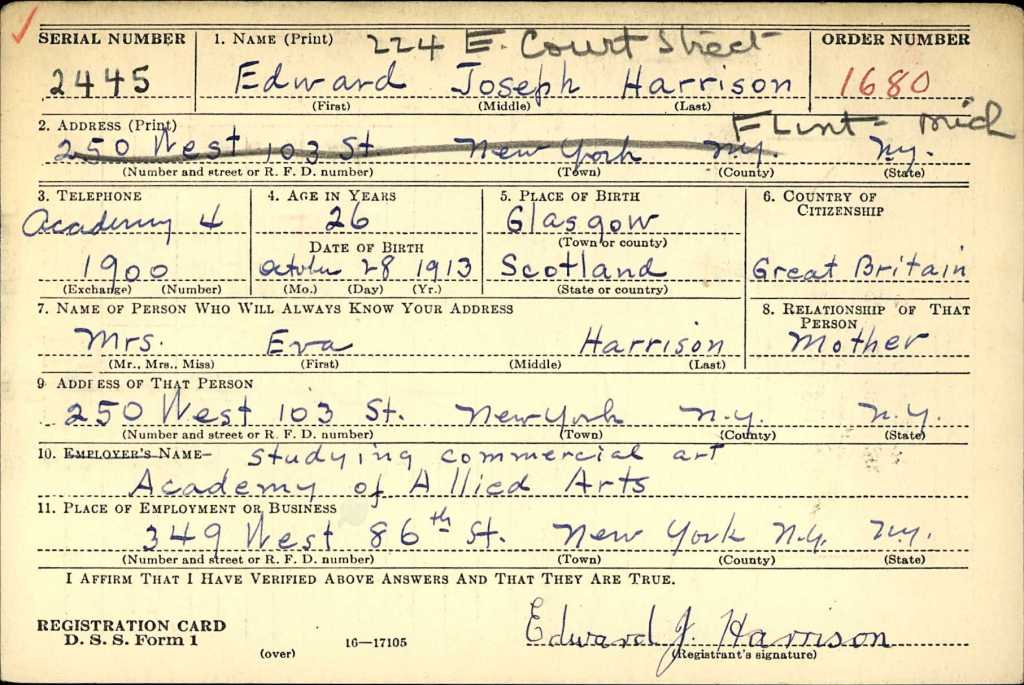 SERIAL NUMBER 1. NAME (Print) 224 E. Court Street ORDER NUMBER
2445 Edward Joseph Harrison 1680
(First) (Middle) (Last)
2. ADDRESS (Print) Flint - Mich
250 West 103 St New York N.Y. N.Y.
(Number and street or R. F. D. number) (Town) (County) (State)
3. TELEPHONE 4. AGE IN YEARS 5. PLACE OF BIRTH 6. COUNTRY OF CITIZENSHIP
Academy 4 26 Glasgow
DATE OF BIRTH (Town or county)
1900 October 28 1913 Scotland Great Britain
(Exchange) (Number) (Mo.) (Day) (Yr.) (State or country)
7. NAME OF PERSON WHO WILL ALWAYS KNOW YOUR ADDRESS 8. RELATIONSHIP OF THAT PERSON
Mrs. Eva Harrison Mother
(Mr., Mrs., Miss) (First) (Middle) (Last)
9 ADDRESS OF THAT PERSON
250 West 103 St. New York N.Y. N.Y.
(Number and street or R. F. D. number) (Town) (County) (State)
10. EMPLOYER'S NAME- studying commercial art
Academy of Allied Arts
11. PLACE OF EMPLOYMENT OR BUSINESS
349 West 86th St. New York N.Y. N.Y.
(Number and street or R. F. D. number) (Town) (County) (State)
I AFFIRM THAT I HAVE VERIFIED ABOVE ANSWERS AND THAT THEY ARE TRUE.
REGISTRATION CARD
D. S. S. Form 1 16-17105 Edward J. Harrison
(over) (Registrant's signature)